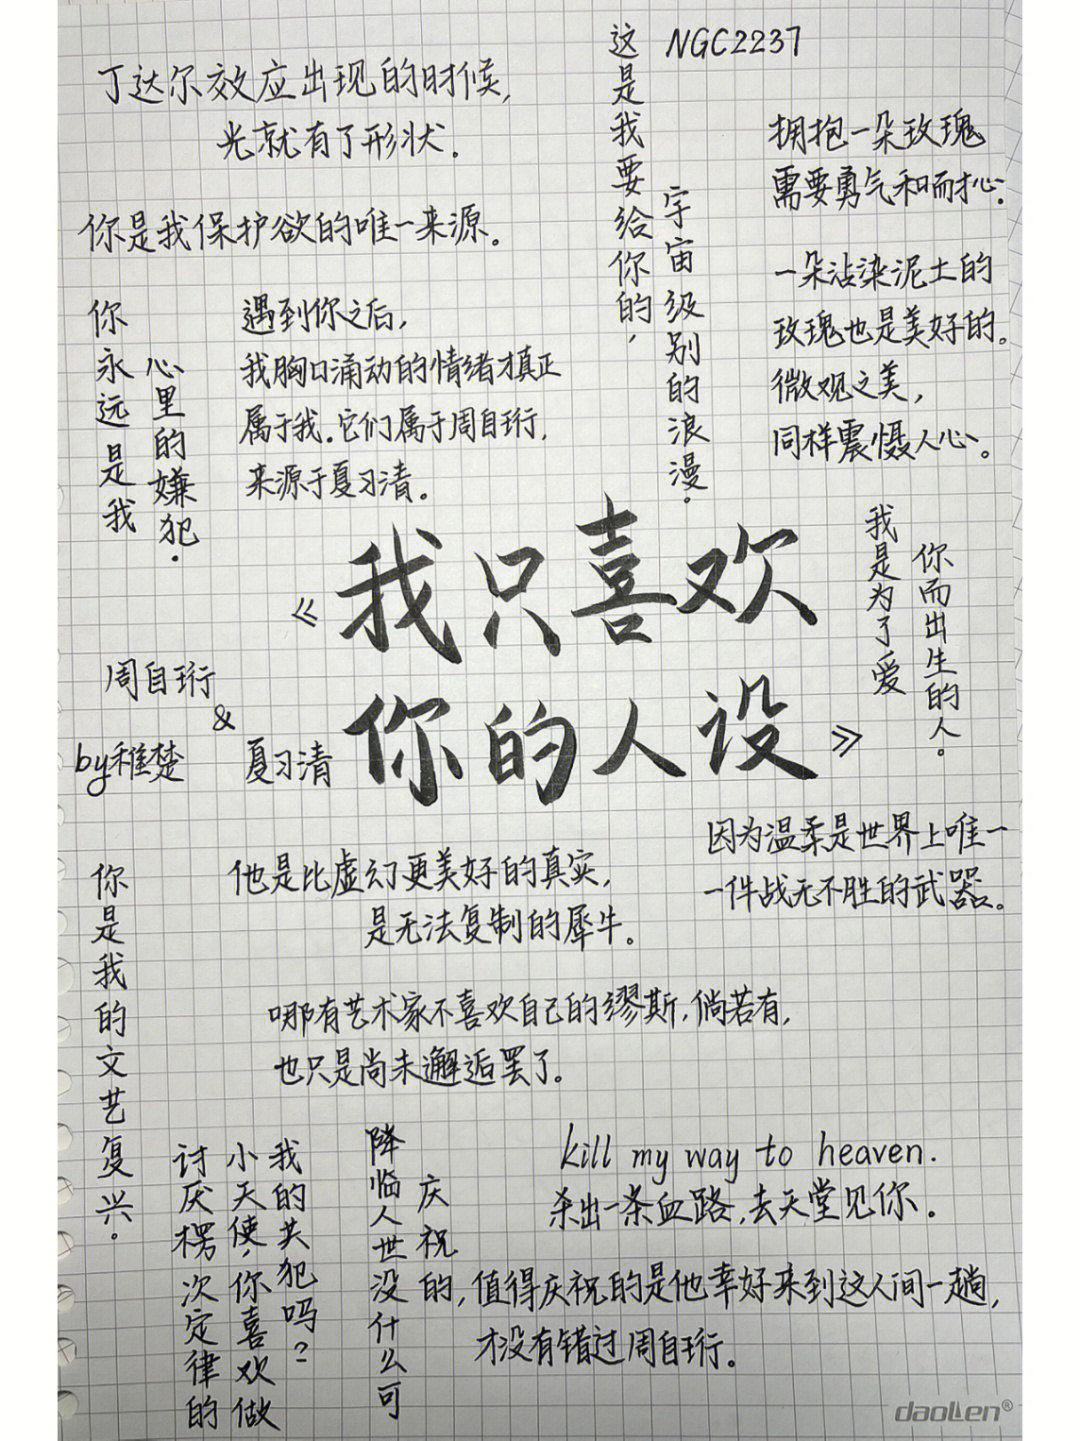 丁达尔效应出现的时候,
光就有了形状.
你是我保护欲的唯一来源。
这是我要给你的,
宇宙级别的浪漫.
NGC2237
拥抱一朵玫瑰
需要勇气和耐心.
一朵沾染泥土的
玫瑰也是美好的。
微观之美,
同样震慑人心。
你永远是我
心里的嫌犯.
遇到你之后,
我胸口涌动的情绪才真正
属于我.它们属于周自珩,
来源于夏习清。
《我只喜欢
你的人设》
我是为了爱
你而出生的人。
周自珩
&
夏习清
by稚楚
因为温柔是世界上唯一
一件战无不胜的武器。
你是我的文艺复兴.
他是比虚幻更美好的真实,
是无法复制的犀牛。
哪有艺术家不喜欢自己的缪斯,倘若有,
也只是尚未邂逅罢了。
讨厌楞次定律的
小天使,你喜欢做
我的共犯吗?
kill my way to heaven.
杀出一条血路,去天堂见你.
降临人世没什么可
庆祝的,值得庆祝的是他幸好来到这人间一趟,
才没有错过周自珩。
daolien®